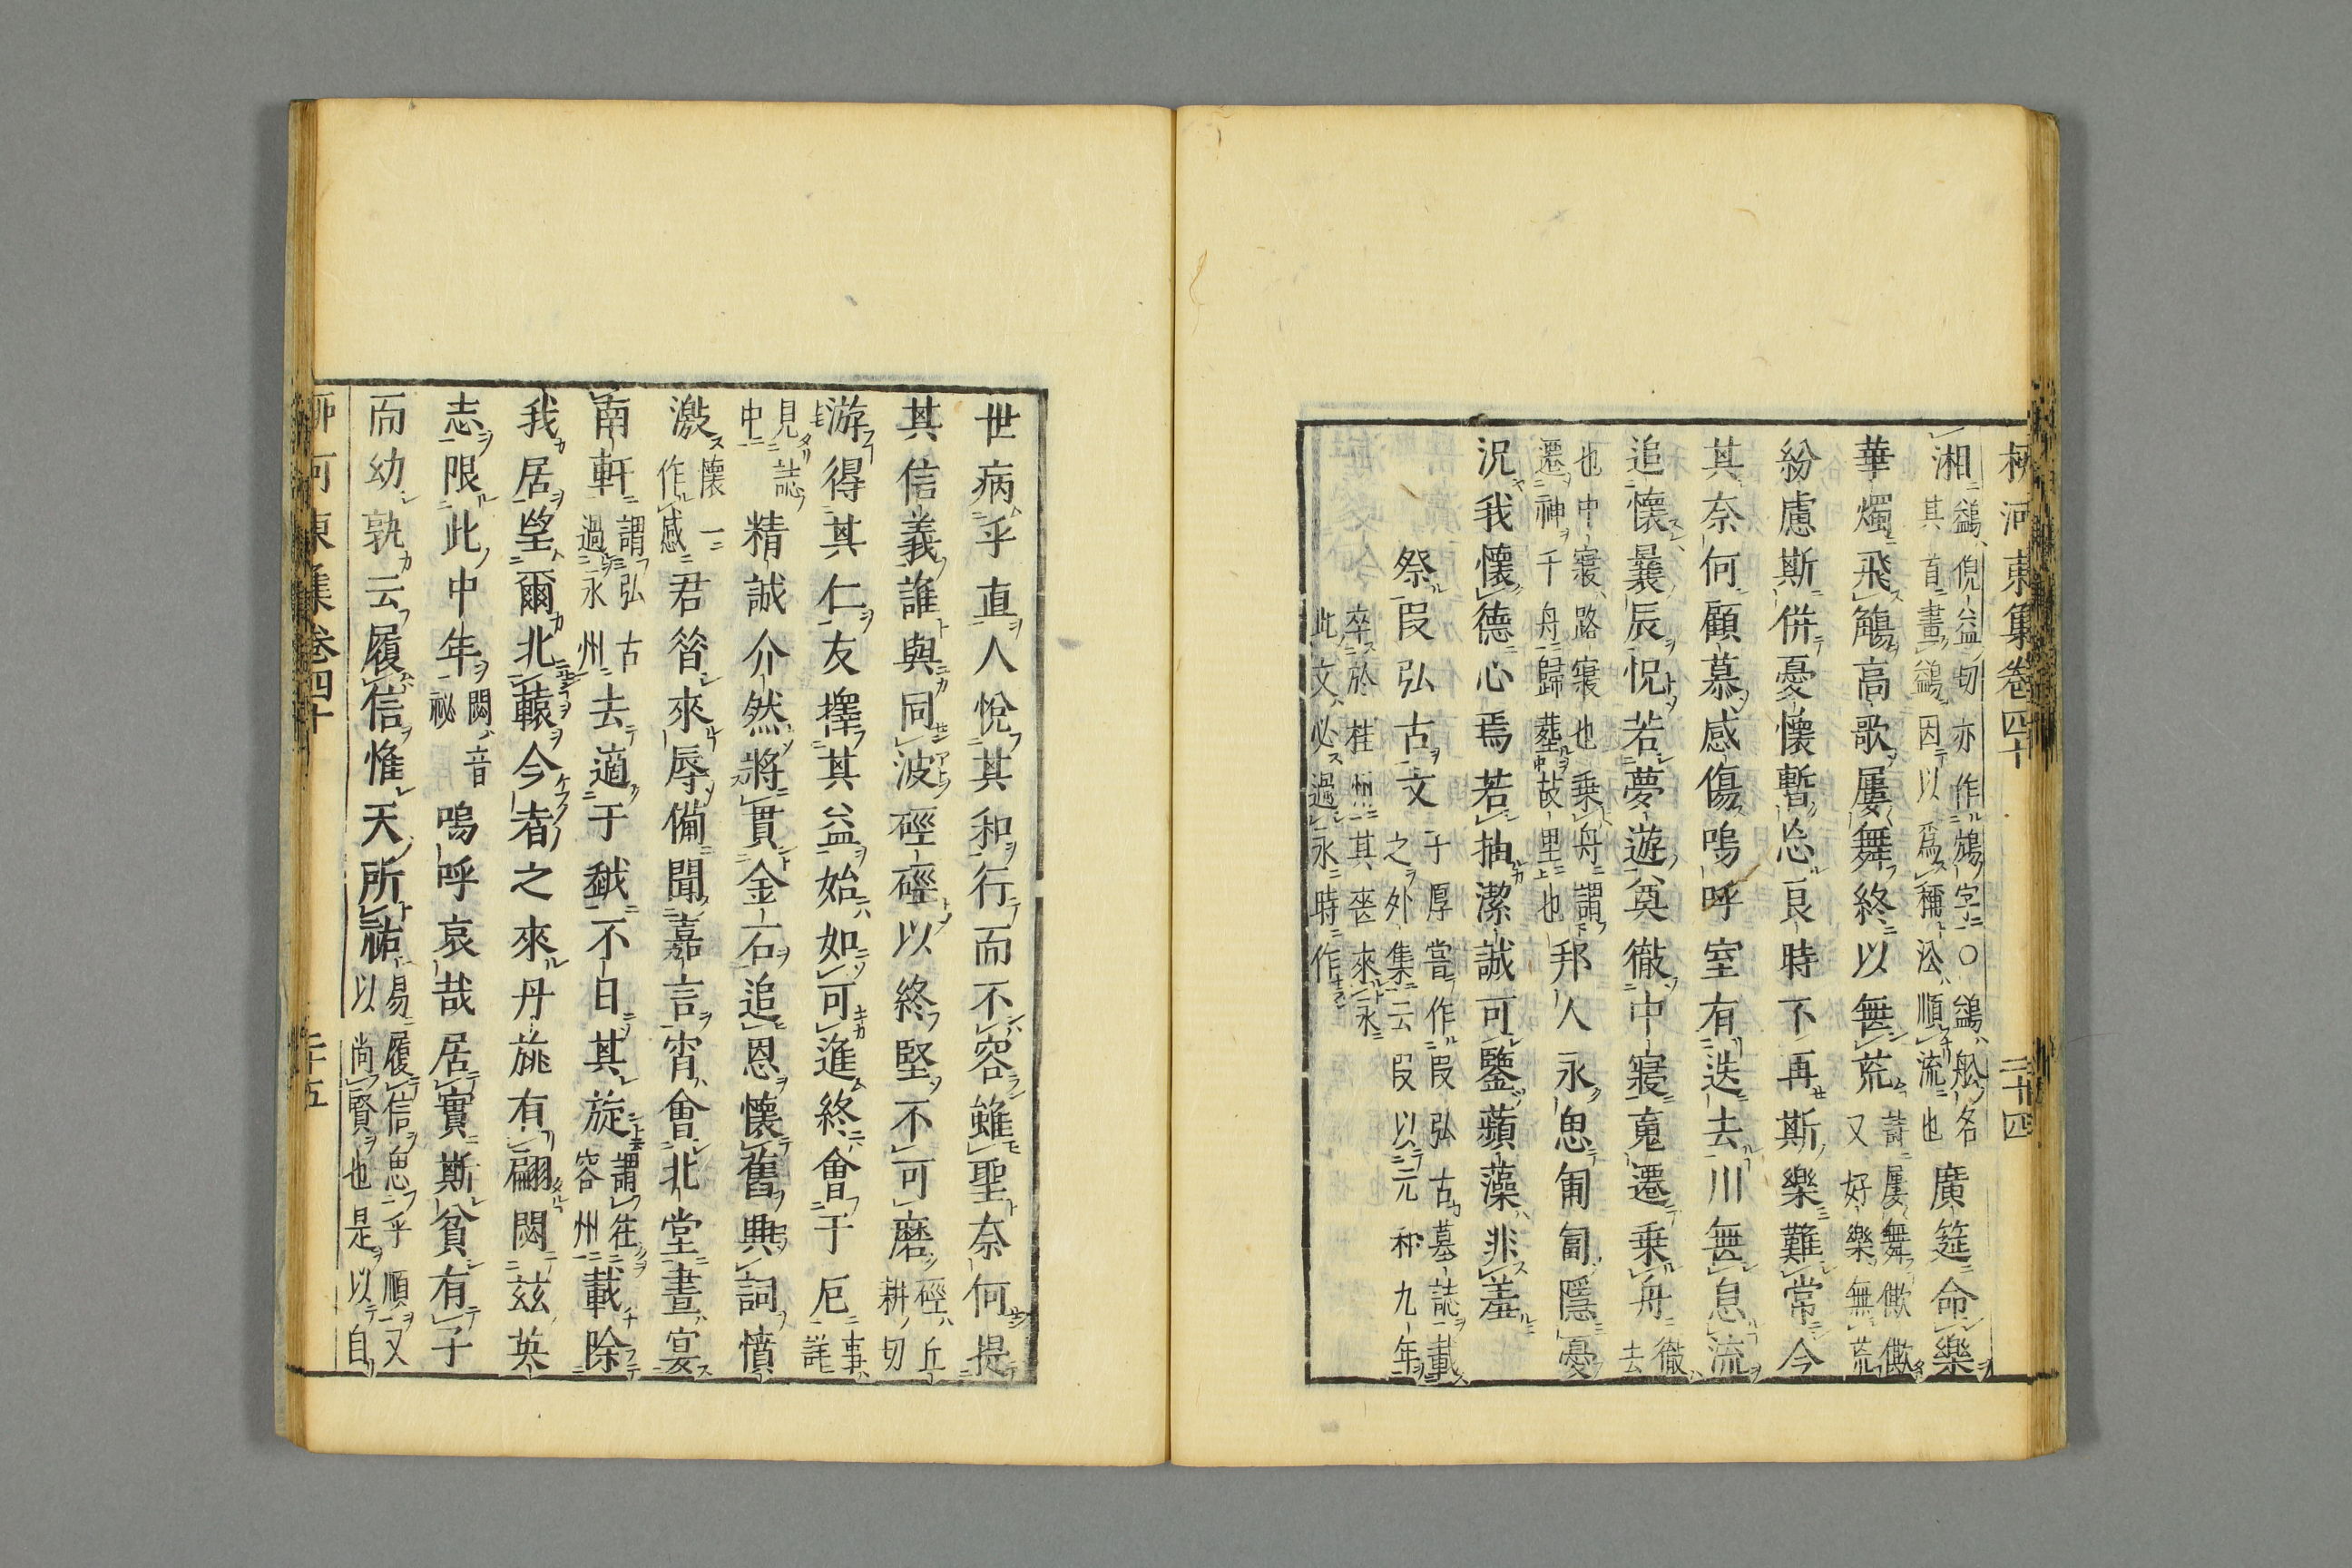 柳河東集卷四十 二十四
湘鷁倪益切亦作鶂字○鷁舩名其首畫鷁因以爲稱㳂順流也廣筵命樂
華燭飛觴高歌屢舞終以無荒詩屢舞僛僛又好樂無荒
紛慮斯併憂懷暫忘良時不再斯樂難常今
其奈何顧慕感傷嗚呼室有迭去川無息流
追懷曩辰怳若夢遊奠徹中寢䰟遷乗舟徹去
也中寢路寢也乗舟謂遷神千舟歸葬故里也邦人永思匍匐隱憂
況我懷德心焉若抽潔誠可鑒蘋藻非羞
祭段弘古文子厚嘗作段弘古墓誌載之外集云段以元和九年
卒於桂州其喪來永此文必過永時作
世病乎直人悅其和行而不容雖聖奈何提
其信義誰與同波硜硜以終堅不可磨硜丘耕切
游得其仁友擇其益始如可進終會于厄事詳
見誌中精誠介然將貫金石追恩懷舊典詞憤
激懷一作感君昝來辱備聞嘉言宵會北堂晝宴
南軒謂弘古過永州去適于越不日其旋謂往容州載除
我居望爾北轅今者之來丹旐有翩閟茲英
志限此中年閟音祕嗚呼哀哉居實斯貧有子
而幼孰云履信惟天所祐易履信思乎順又以尚賢也是以自
柳河東集卷四十 二十五